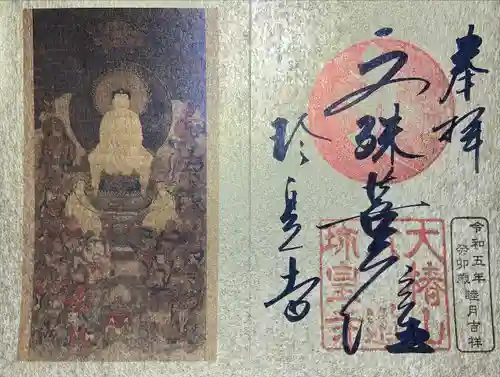 奉拝
文殊菩薩
珍皇寺
大椿山
六道
珍皇寺
令和五年 睦月吉祥
癸卯歳